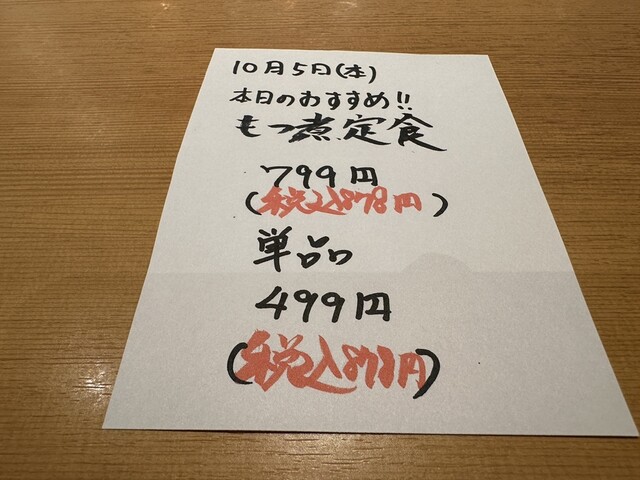 10月5日(木)
本日のおすすめ!!
もつ煮定食
799円
(税込878円)
単品
499円
(税込
円)